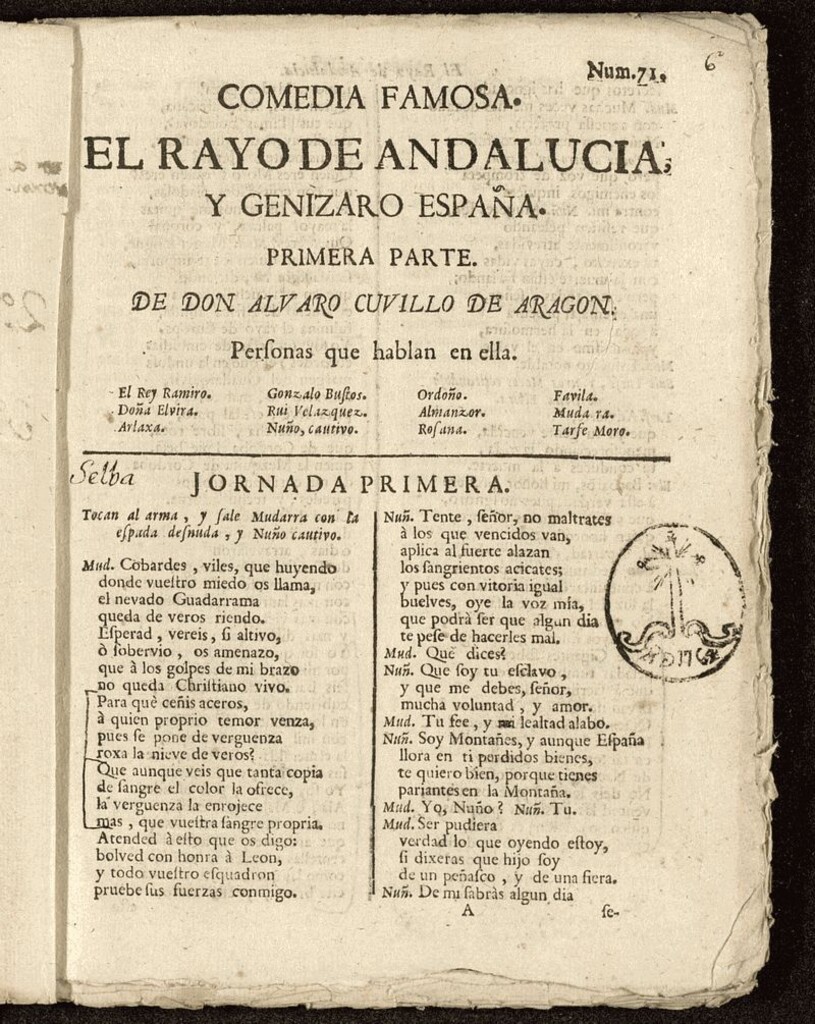 Num.71.
6
COMEDIA FAMOSA.
EL RAYO DE ANDALUCIA,
Y GENIZARO ESPAÑA.
PRIMERA PARTE.
DE DON ALVARO CUVILLO DE ARAGON.
Perſonas que hablan en ella.
El Rey Ramiro. Gonzalo Buſtos. Ordoño. Favila.
Doña Elvira. Rui Velazquez. Almanzor. Muda ra.
Arlaxa. Nuño, cautivo. Roſana. Tarfe Moro.
Selva
JORNADA PRIMERA.
Tocan al arma, y ſale Mudarra con la
eſpada deſnuda, y Nuño cautivo.
Mud. Cobardes, viles, que huyendo
donde vueſtro miedo os llama,
el nevado Guadarrama
queda de veros riendo.
Eſperad, vereis, ſi altivo,
ò ſobervio, os amenazo,
que à los golpes de mi brazo
no queda Chriſtiano vivo.
Para què ceñis aceros,
à quien proprio temor venza,
pues ſe pone de verguenza
roxa la nieve de veros?
Que aunque veis que tanta copia
de ſangre el color la ofrece,
la verguenza la enrojece
mas, que vueſtra ſangre propria.
Atended à eſto que os digo:
bolved con honra à Leon,
y todo vueſtro eſquadron
pruebe ſus fuerzas conmigo.
Nuñ. Tente, ſeñor, no maltrates
à los que vencidos van,
aplica al fuerte alazan
los ſangrientos acicates;
y pues con vitoria igual
buelves, oye la voz mia,
que podrà ſer que algun dia
te peſe de hacerles mal.
Mud. Què dices?
Nuñ. Que ſoy tu eſclavo,
y que me debes, ſeñor,
mucha voluntad, y amor.
Mud. Tu fee, y lealtad alabo.
Nuñ. Soy Montañes, y aunque Eſpaña
llora en ti perdidos bienes,
te quiero bien, porque tienes
pariantes en la Montaña.
Mud. Yo, Nuño? Nuñ. Tu.
Mud. Ser pudiera
verdad lo que oyendo eſtoy,
ſi dixeras que hijo ſoy
de un peñaſco, y de una fiera.
Nuñ. De mi ſabràs algun dia
A ſe-